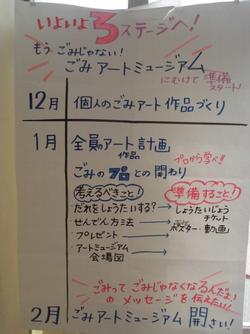 いよいよ3ステージへ!
もうごみじゃない!
ごみアートミュージアム
にむけて準備スタート!
12月 個人のごみアート作品づくり
1月 全員アート作品計画
プロから学べ!!
ごみのプロとの関わり
考えるべきこと! 準備すること!
だれをしょうたいする?→しょうたいじょう
チケット
せんでん方法→ポスター・動画
プレゼント→
アートミュージアム→
会場図
ごみってごみじゃなくなるんだよ!
のメッセージを伝えたい!
2月 ごみアートミュージアム開さい!